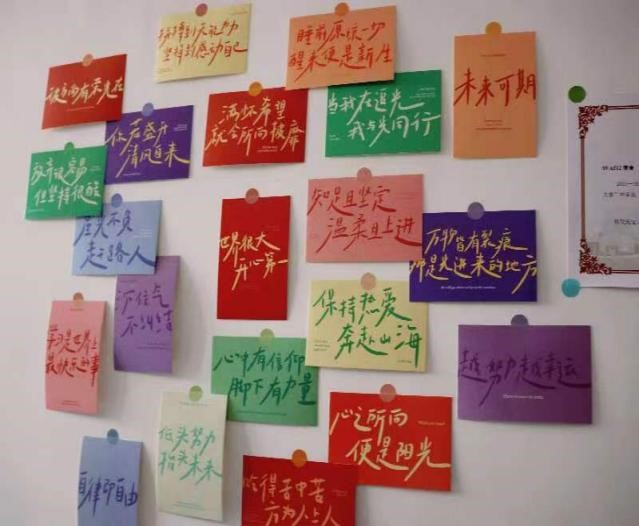 坚持到感动自己
睡前原谅一切
醒来便是新生
未来可期
满怀希望
就会所向披靡
当我在追光
我与光同行
你若盛开
清风自来
放弃很容易
但坚持很酷
星光不负
世界很大
开心第一
知足且坚定
温柔且上进
万物皆有裂痕
那是光进来的地方
沉住气
不纠结
保持热爱
奔赴山海
学习是世界上
心中有信仰
脚下有力量
越努力越幸运
心之所向
便是阳光
低头努力
抬头未来
自律即自由
吃得苦中苦
方为人上人